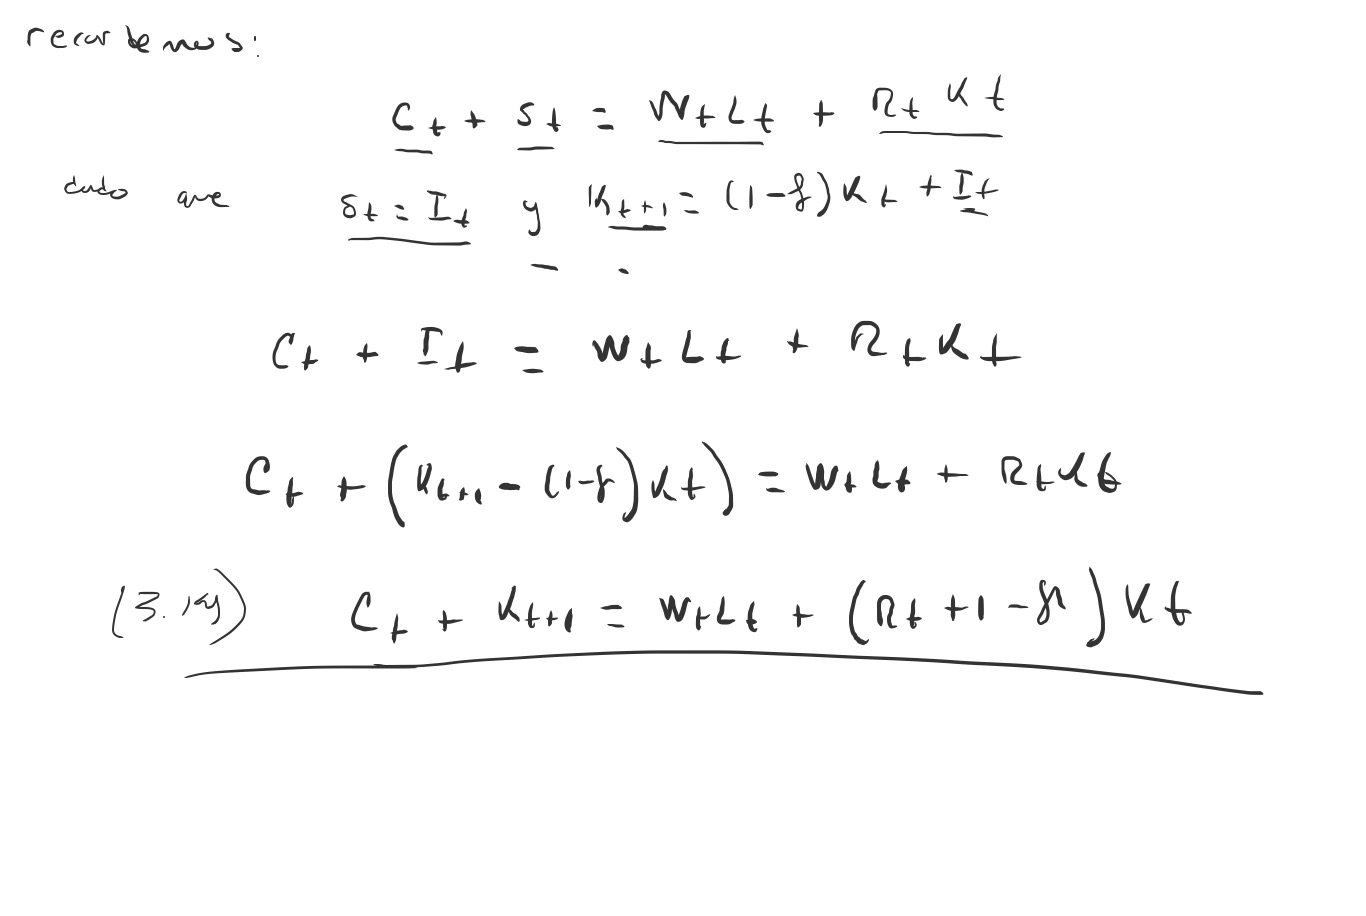 recordemos:
C_t + S_t = W_t L_t + R_t K_t
dado que S_t = I_t y K_{t+1} = (1-δ) K_t + I_t
C_t + I_t = W_t L_t + R_t K_t
C_t + (K_{t+1} - (1-δ) K_t) = W_t L_t + R_t K_t
C_t + K_{t+1} = W_t L_t + (R_t + 1 - δ) K_t